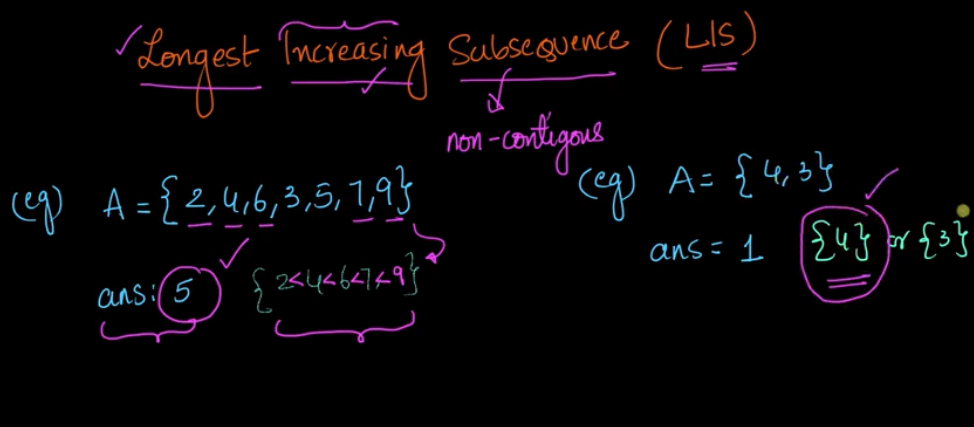 Longest Increasing Subsequence (LIS)
non-contigous
(eg) A = {2,4,6,3,5,7,9}
ans: 5 {2<4<6<7<9}
(eg) A = {4,3}
ans = 1 {4} or {3}